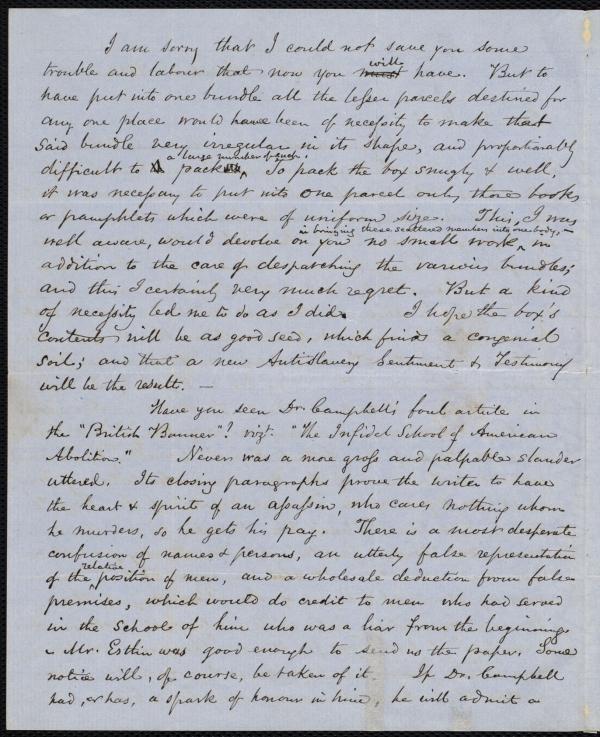 I am sorry that I could not save you some
trouble and labour that now you must will have. But to
have put into one bundle all the lesser parcels destined for
any one place would have been of necessity to make that
said bundle very irregular in its shape, and proportionably
difficult to pack a large number of such. To pack the box snugly & well,
it was necessary to put into one parcel only those books
or pamphlets which were of uniform size. This, I was
well aware, would devolve on you no small work, in bringing these scattered members into one body, – in
addition to the care of despatching the various bundles;
and this I certainly very much regret. But a kind
of necessity led me to do as I did. I hope the box's
contents will be as good seed, which finds a congenial
soil; and that a new Antislavery Sentiment & Testimony
will be the result. —
Have you seen Dr. Campbell's foul article in
the "British Banner"? vizt. "The Infidel School of American
Abolition." Never was a more gross and palpable slander
uttered. Its closing paragraphs prove the writer to have
the heart & spirit of an assassin, who cares nothing whom
he murders, so he gets his pay. There is a most desperate
confusion of names & persons, an utterly false representation
of the relative position of men, and a wholesale deduction from false
premises, which would do credit to men who had served
in the school of him who was a liar from the beginning.
Mr. Estlin was good enough to send us the paper. Some
notice will, of course, be taken of it. If Dr. Campbell
had, or has, a spark of honour in him, he will admit a